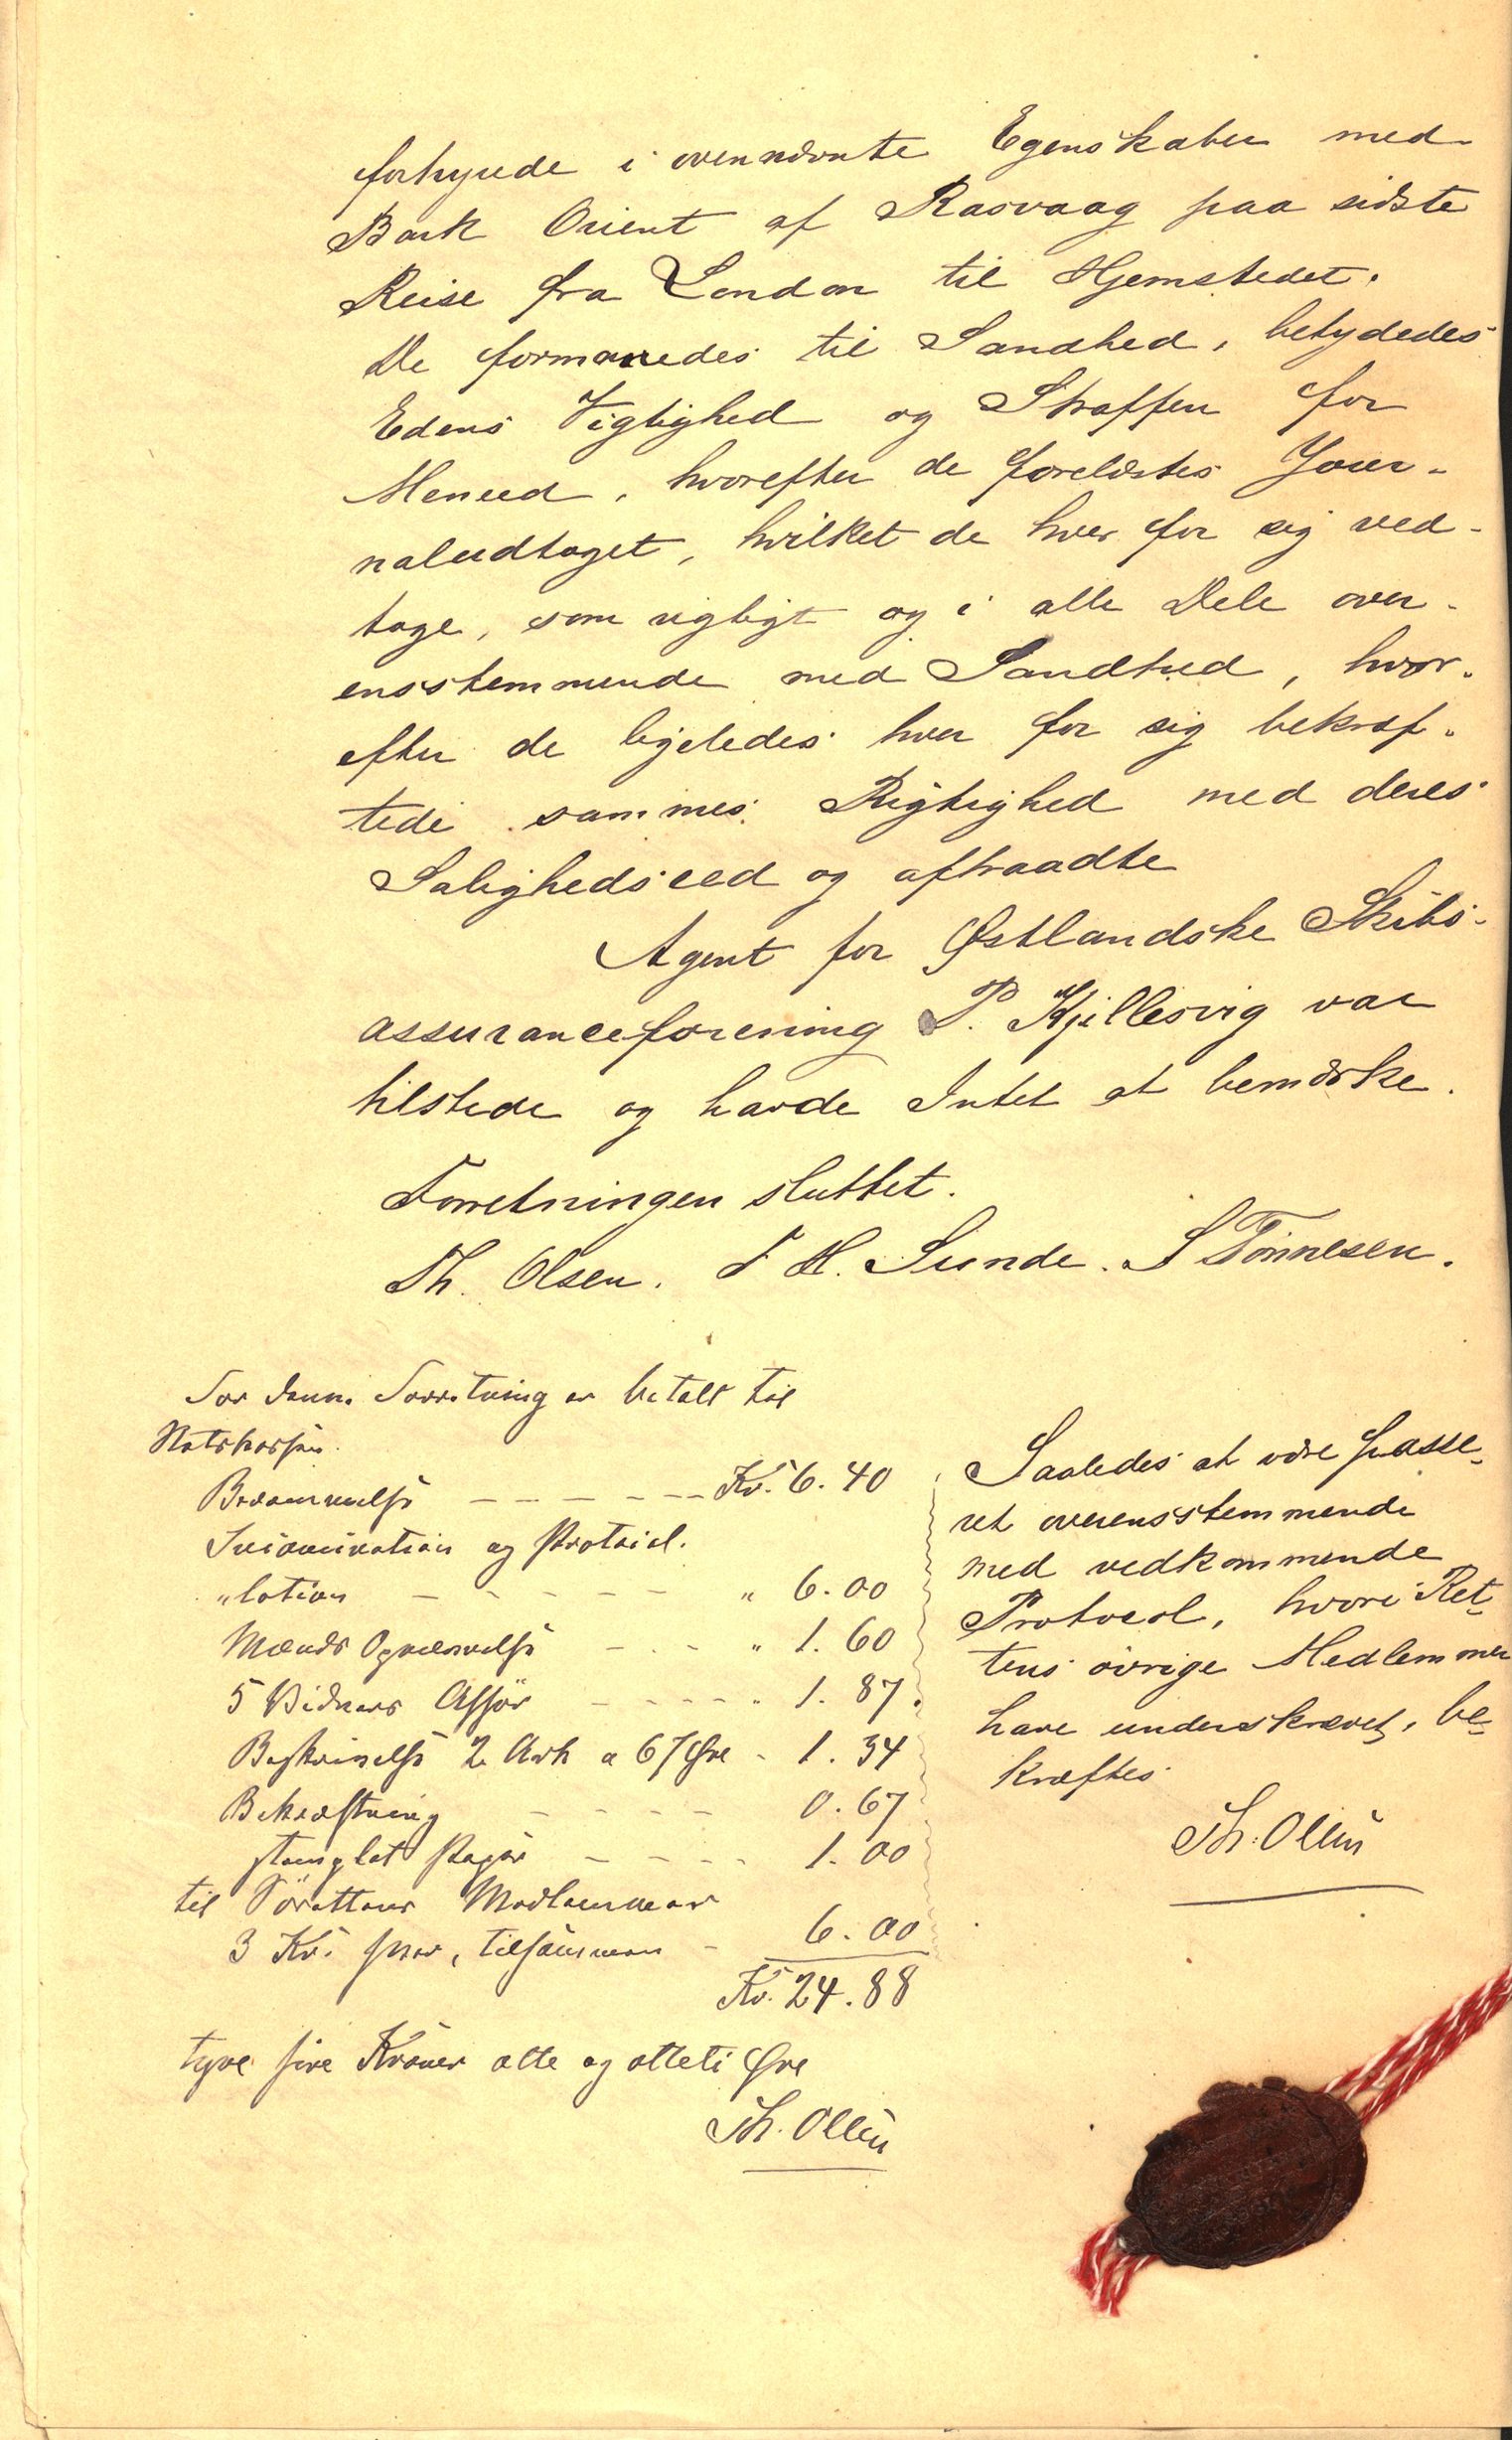 forhyrede i ovennævnte Egenskaber med
Bark Orient af Rasvaag paa sidste
Reise fra London til Hjemstedet.
De formanedes til Sandhed, betydedes
Edens Vigtighed og Straffen for
Meneed, hvorefter de forelæstes Jour-
naludtoget, hvilket de hver for sig ved-
toge, som rigtigt og i alle Dele over-
ensstemmende med Sandhed, hvor-
efter de ligeledes hver for sig bekræf-
tede sammes Rigtighed med deres
Salighedseed og aftraadte
Agent for Østlandske Skibs-
assuranceforening P. Kjellesvig var
tilstede og havde Intet at bemærke.
Forretningen sluttet.
Th. Olsen. T H. Sunde. S Tönnesen.
For denne Forretning er betalt til
Statskassen.
Berammelse Kr. 6.40
Incamination og Protocol-
"lation " 6.00
Mænds Opnævnelse " 1.60
5 Vidners Afhör " 1.87.
Beskrivelse 2 Ark a 67 Øre - 1.34
Bekræftning 0.67
stemplet Papir 1.00
til Sörettens Medlemmer
3 Kr. hver, tilsammen - 6.00
Kr. 24.88
tyve fire Kroner otte og otteti Øre
Th. Olsen
Saaledes at være passe-
ret overensstemmende
med vedkommende
Protocol, hvori Ret-
tens övrige Medlemmer
have underskrevet, be-
kræftes
Th. Olsen